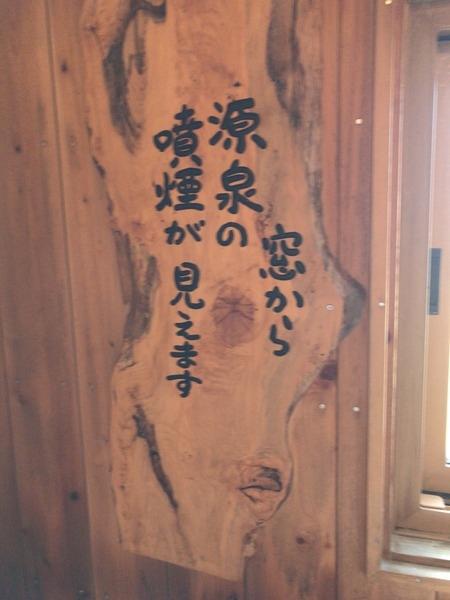 窓から
源泉の
噴煙が見えます